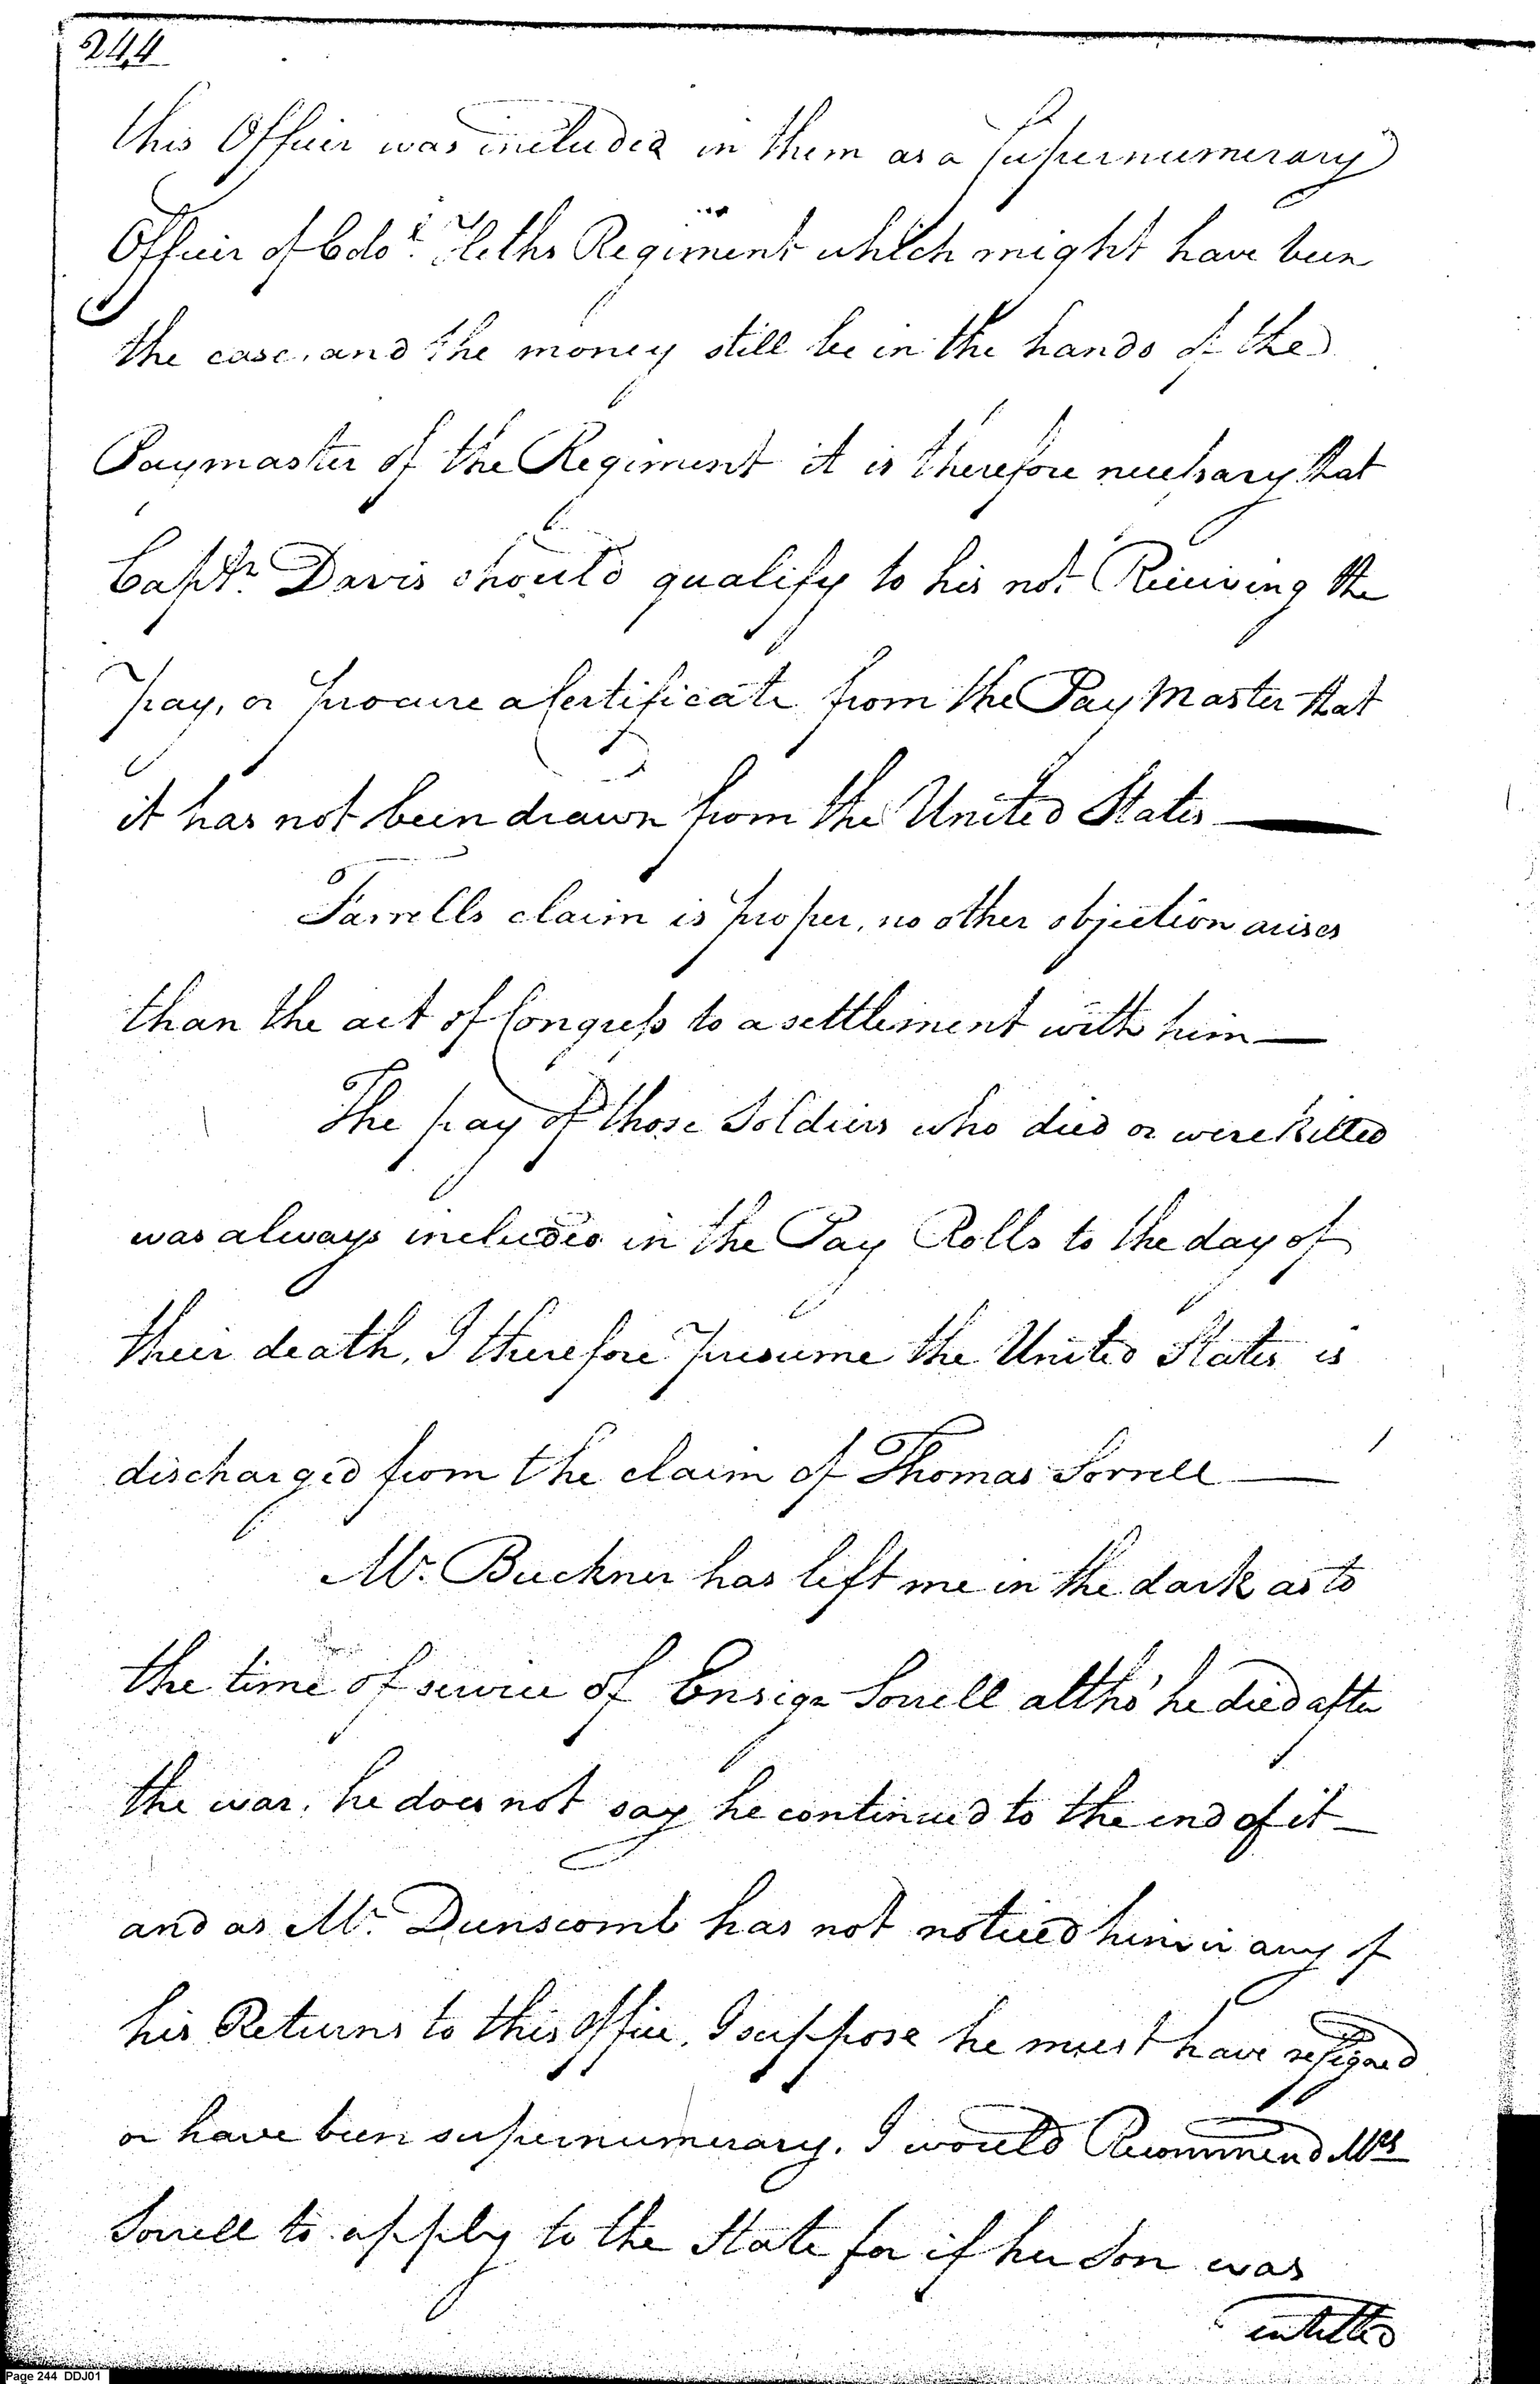 244
this Officer was included in them as a Supernumerary
Officer of Colo. Heths Regiment which might have been
the case, and the money still be in the hands of the
Paymaster of the Regiment it is therefore necessary that
Captn. Davis should qualify to his not Receiving the
pay, or procure a Certificate from the Pay Master that
it has not been drawn from the United States —
Farrells claim is proper, no other objection arises
than the act of Congress to a settlement with him —
The pay of those Soldiers who died or were killed
was always included in the Pay Rolls to the day of
their death, I therefore presume the United States is
discharged from the claim of Thomas Sorrell —
Mr. Buckner has left me in the dark as to
the time of service of Ensign Sorrell altho' he died after
the war, he does not say he continued to the end of it —
and as Mr. Dunscomb has not noticed him in any of
his Returns to this Office, I suppose he must have resigned
or have been supernumerary. I would Recommend Mrs
Sorrell to apply to the State for if her Son was
entitled
Page 244 DDJ01